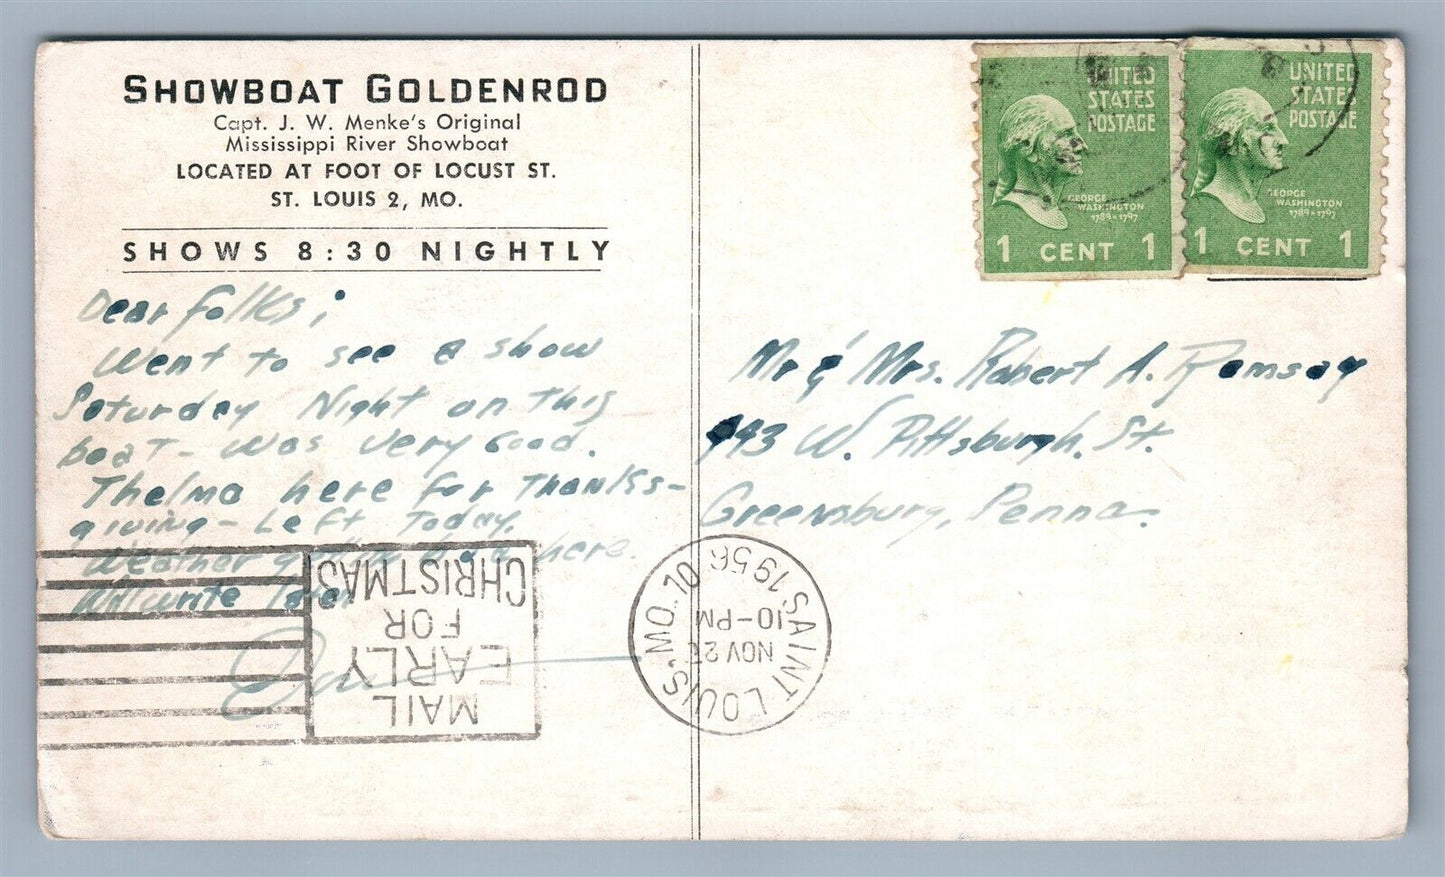 SHOWBOAT GOLDENROD
Capt. J. W. Menke's Original
Mississippi River Showboat
LOCATED AT FOOT OF LOCUST ST.
ST. LOUIS 2, MO.
SHOWS 8:30 NIGHTLY
Dear folks;
Went to see a show
Saturday Night on this
boat - was very Good.
Thelma here for Thanks-
giving - Left Today.
Weather here.
Will write
UNITED
STATES
POSTAGE
GEORGE
WASHINGTON
1789-1797
1 CENT 1
UNITED
STATES
POSTAGE
GEORGE
WASHINGTON
1789-1797
1 CENT 1
Mr & Mrs. Robert A. Ramsay
W. Pittsburgh. St.
Greensburg, Penna.
MAIL
EARLY
FOR
CHRISTMAS
SAINT LOUIS, MO. 10
NOV
10-PM
1956